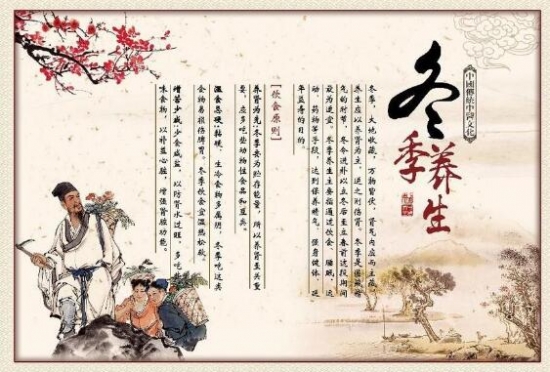 中國傳統中醫文化
冬季养生
冬季，大地收藏，万物皆伏，肾气内应而主藏，
养生应以养肾为主，逆之则伤肾。冬季是匿藏精
气的时节，冬令进补以立冬后至立春前这段期间
最为适宜。冬季养生主要指通过饮食、睡眠、运
动、药物等手段，达到保养精气、强身健体、延
年益寿的目的。
【饮食原则】
养肾为先:冬季要为贮存能量，所以养肾至关重
要，应多吃些动物性食品和豆类。
温食忌硬:黏硬、生冷食物多属阴，冬季吃这类
食物易损伤脾胃。冬季饮食宜温热松软。
增苦少咸:少食咸盐，以防肾水过旺，多吃些苦
味食物，以补益心脏，增强肾脏功能。